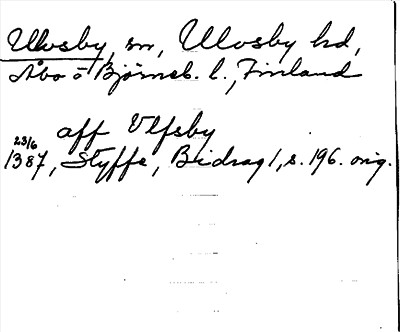 Ulvsby, sn, Ulvsby hd,
Åbo o Björneb. l., Finland
aff Vlfsby
23/6
1387, Styffe, Bidrag 1, s. 196. orig.